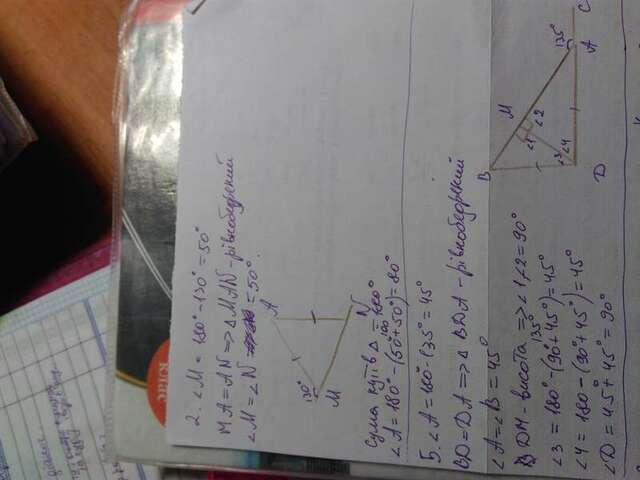 2. ∠M = 180° - 130° = 50°
MA = AN => △ MAN - рівнобедрений
∠M = ∠N = 50°.
A
130°
M
N
Сума кутів △ = 180°
∠A = 180° - (50° + 50°) = 80°
5. ∠A = 180° - 135° = 45°
BD = DA => △ BDA - рівнобедрений
∠A = ∠B = 45°
DM - висота => ∠1,2 = 90°
∠3 = 180° - (90 + 45°) = 45°
∠4 = 180 - (90° + 45°) = 45°
∠D = 45 + 45° = 90°
B
M
∠1
∠2
∠3
∠4
135°
D
A
C
КЛАС